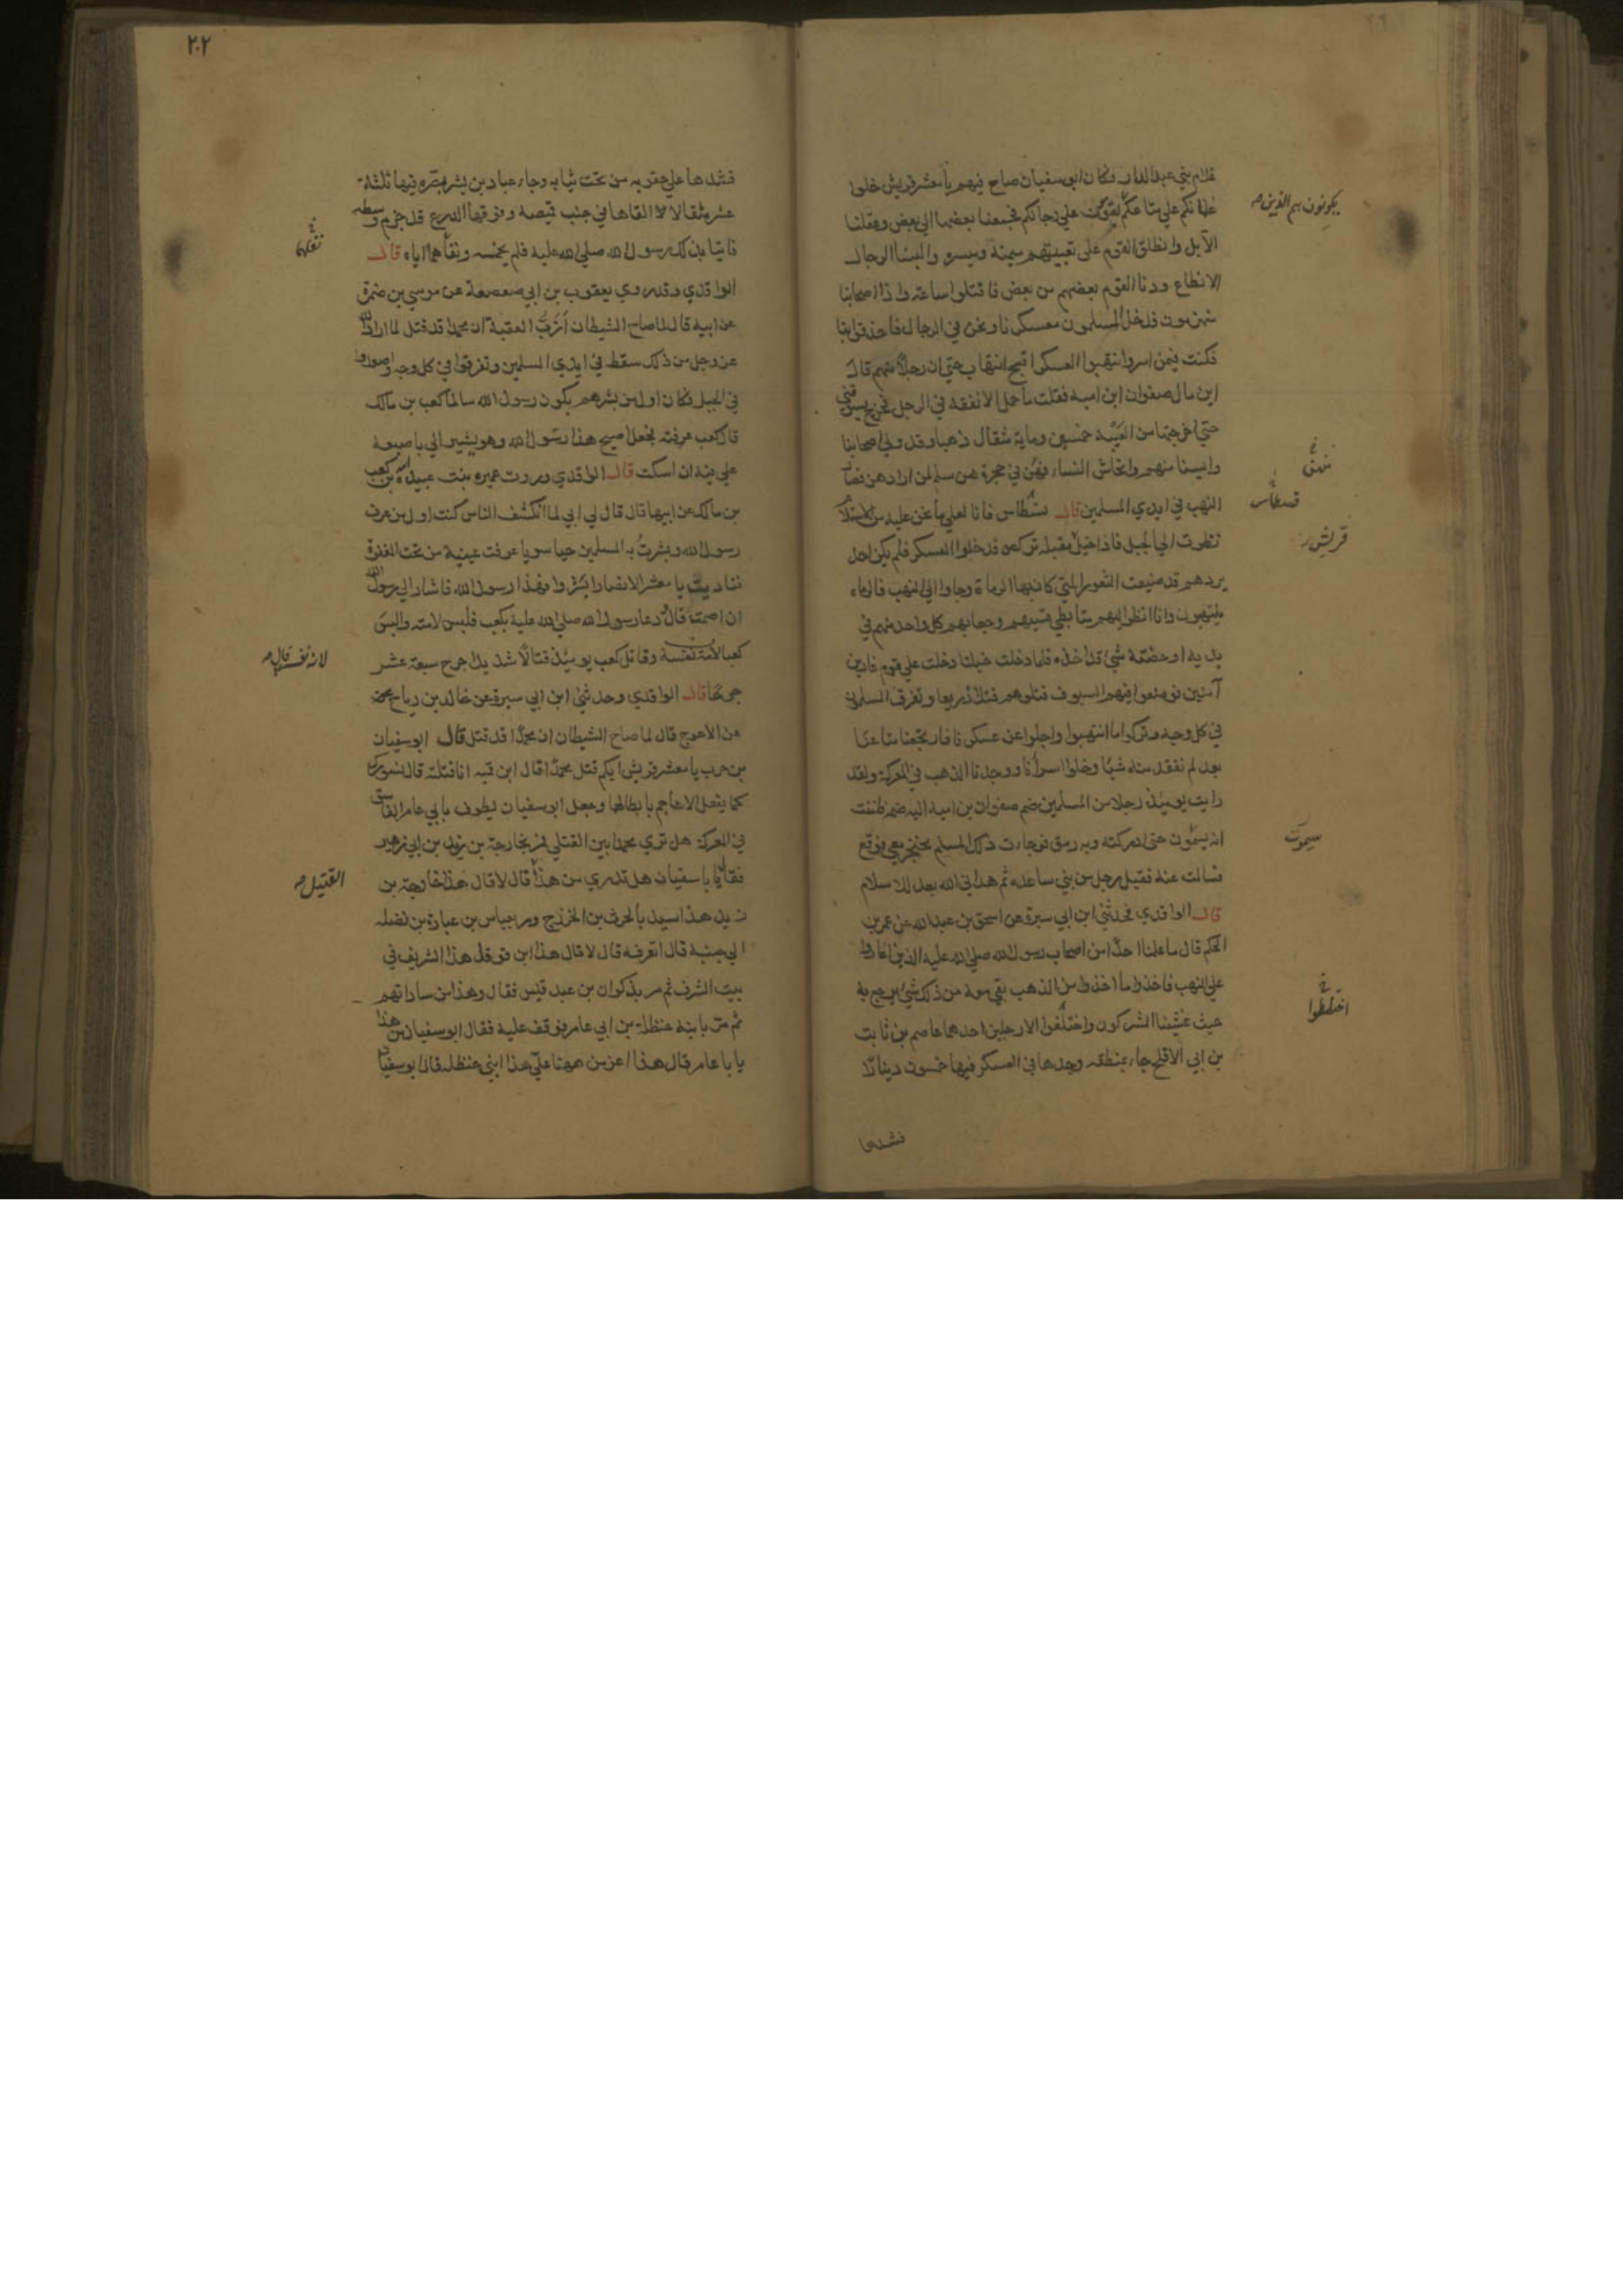 غلام بني عبد الدار وكان ابو سفيان صاح فيهم يا معشر قريش خلوا
غلمانكم على متاعكم على رحالكم فجمعنا بعضها الي بعض وعقلنا
الابل وانطلق القوم على تعبيتهم ميمنة وميسرة والبسنا الرحال
الانطاع ودنا القوم بعضهم من بعض فاقتتلوا ساعة واذا اصحابنا
منهزمون فدخل المسلمون معسكرنا ونحن في الرحال فاحدقوا بنا
فكنت فيمن اسروا وانتهبوا العسكر اقبح انتهاب حتى ان رجلا منهم قال
اين مال صفوان ابن امية فقلت ما حمل الا نفقة في الرحل فخرج يسوقني
حتي اخرجتها من العيبة خمسين وماية مثقال ذهبا وقد ولي اصحابنا
وايسنا منهم وانحاش النساء فهن في حجرهن سلم لمن ارادهن فصار
النهب في ايدي المسلمين قال نسطاس فانا لعلي ما نحن عليه من الاستسلام
نظرت الي الجبل فاذا خيل مقبلة تركض فدخلوا العسكر فلم يكن احد
يردهم قد ضيعت الثغور التي كان بها الرماة وجاوا الي النهب فالرماة
ينتهبون وانا انظر اليهم متابطي قسيهم وجعابهم كل واحد منهم في
يديه او حضنه شي قد اخذه فلما دخلت خيلنا دخلت علي قوم غارين
آمنين فوضعوا فيهم السيوف فقتلوهم قتلا ذريعا وتفرق المسلمون
في كل وجه وتركوا ما انتهبوا واجلوا عن عسكرنا فارتجعنا متاعنا
بعد لم نفقد منه شيا وخلوا اسرانا ووجدنا الذهب في المعركة ولقد
رايت يوميذ رجلا من المسلمين ضم صفوان بن امية اليه ضمة ظننت
انه يموت حتى ادركته وبه رمق فوجات ذلك المسلم بخنجر معي فوقع
فسالت عنه فقيل رجل من بني ساعدة ثم هداني الله بعد للاسلام
قال الواقدي فحدثني ابن ابي سبرة عن اسحق بن عبد الله عن عمر بن
الحكم قال ما علمنا احدا من اصحاب رسول الله صلي الله عليه الذين اغاروا
علي النهب فاخذوا ما اخذوا من الذهب بقي معه من ذلك شي يرجع به
حيث غشينا المشركون واختلفوا الا رجلين احدهما عاصم بن ثابت
بن ابي الاقلح جاء بمنطقة وجدها في العسكر فيها خمسون دينارا
فشدها
يكونون هم الذين
نسطاس
قريش
سيموت
اختلطوا
٢٠٢
فشدها علي حقويه من تحت ثيابه وجاء عباد بن بشر بصرة فيها ثلثة
عشر مثقالا القاها في جنب قميصه وفوقها الدرع قد حزم وسطه
فاتيا بذلك رسول الله صلي الله عليه فلم يخمسه ونفلهما اياه قال
الواقدي وقد روي يعقوب بن ابي صعصعة عن موسي بن ضمرة
عن ابيه قال لما صاح الشيطان ازب العقبة ان محمدا قد قتل لما اراد الله
عز وجل من ذلك سقط في ايدي المسلمين وتفرقوا في كل وجه واصعدوا
في الجبل فكان اول من بشرهم بكون رسول الله سالما كعب بن مالك
قال كعب عرفته فجعلت اصيح هذا رسول الله وهو يشير الي باصبعه
علي فيه ان اسكت قال الواقدي وروت عميرة بنت عبيد الله بن كعب
بن مالك عن ابيها قال قال لي ابي لما انكشف الناس كنت اول من عرف
رسول الله وبشرت به المسلمين حيا سويا عرفت عينيه من تحت المغفر
فناديت يا معشر الانصار ابشروا فهذا رسول الله فاشار الي رسول الله
ان اصمت قال ودعا رسول الله صلي الله عليه بكعب فلبس لامته والبس
كعبا لامة نفسه وقاتل كعب يوميذ قتالا شديدا جرح سبعة عشر
جرحا قال الواقدي وحدثني ابن ابي سبرة عن خالد بن رباح
عن الاعرج قال لما صاح الشيطان ان محمدا قد قتل قال ابو سفيان
بن حرب يا معشر قريش ايكم قتل محمدا قال ابن قميه انا قتلته قال نسورك
كما يفعل الاعاجم بابطالها وجعل ابو سفيان يطوف بابي عامر الفاسق
في المعركة هل تري محمدا بين القتلي فمر بخارجة بن زيد بن ابي زهير
فقال يا با سفيان هل تدري من هذا قال لا قال هذا خارجة بن
زيد هذا اسيد بالحرث بن الخزرج ومر بعباس بن عبادة بن نضلة
الي جنبه قال اتعرفه قال لا قال هذا ابن قوقل هذا الشريف في
بيت الشرف ثم مر بذكوان بن عبد قيس فقال وهذا من ساداتهم
ثم مر بابنه حنظلة بن ابي عامر فوقف عليه فقال ابو سفيان من هذا
يا با عامر قال هذا اعز من ههنا علي هذا ابني حنظلة قال ابو سفيان
لامة نفسه قال
القتيل